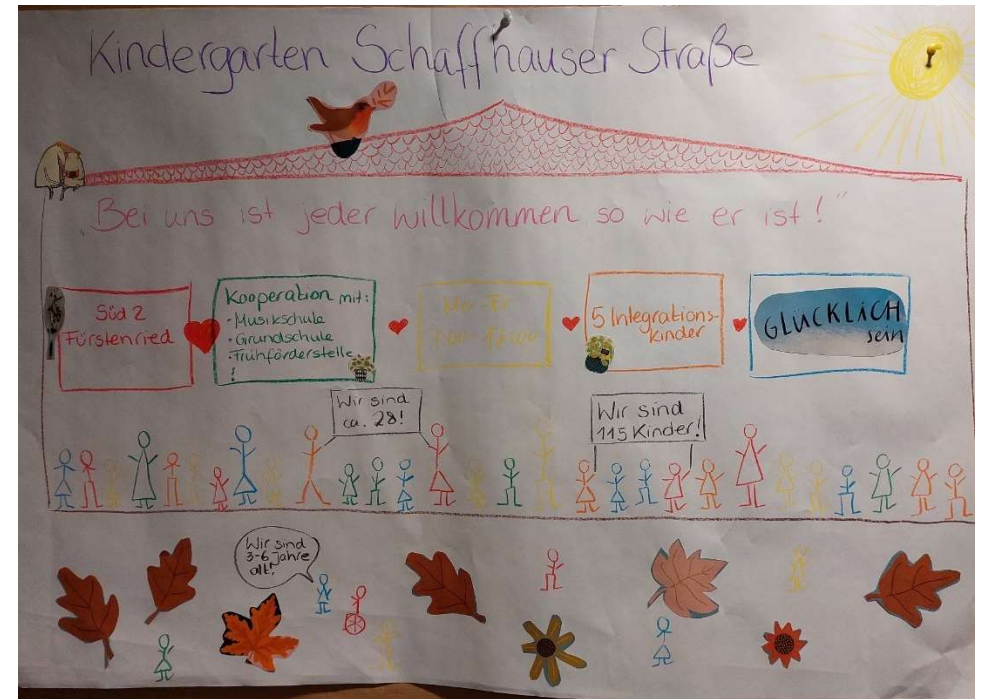 Kindergarten Schaffhauser Straße
"Bei uns ist jeder willkommen so wie er ist!"
Süd 2
Fürstenried
Kooperation mit:
- Musikschule
- Grundschule
- Frühförderstelle
Mo-Fr
5 Integrations-
kinder
GLÜCKLICH
sein
Wir sind
ca. 28!
Wir sind
115 Kinder!
Wir sind
3-6 Jahre
alt!